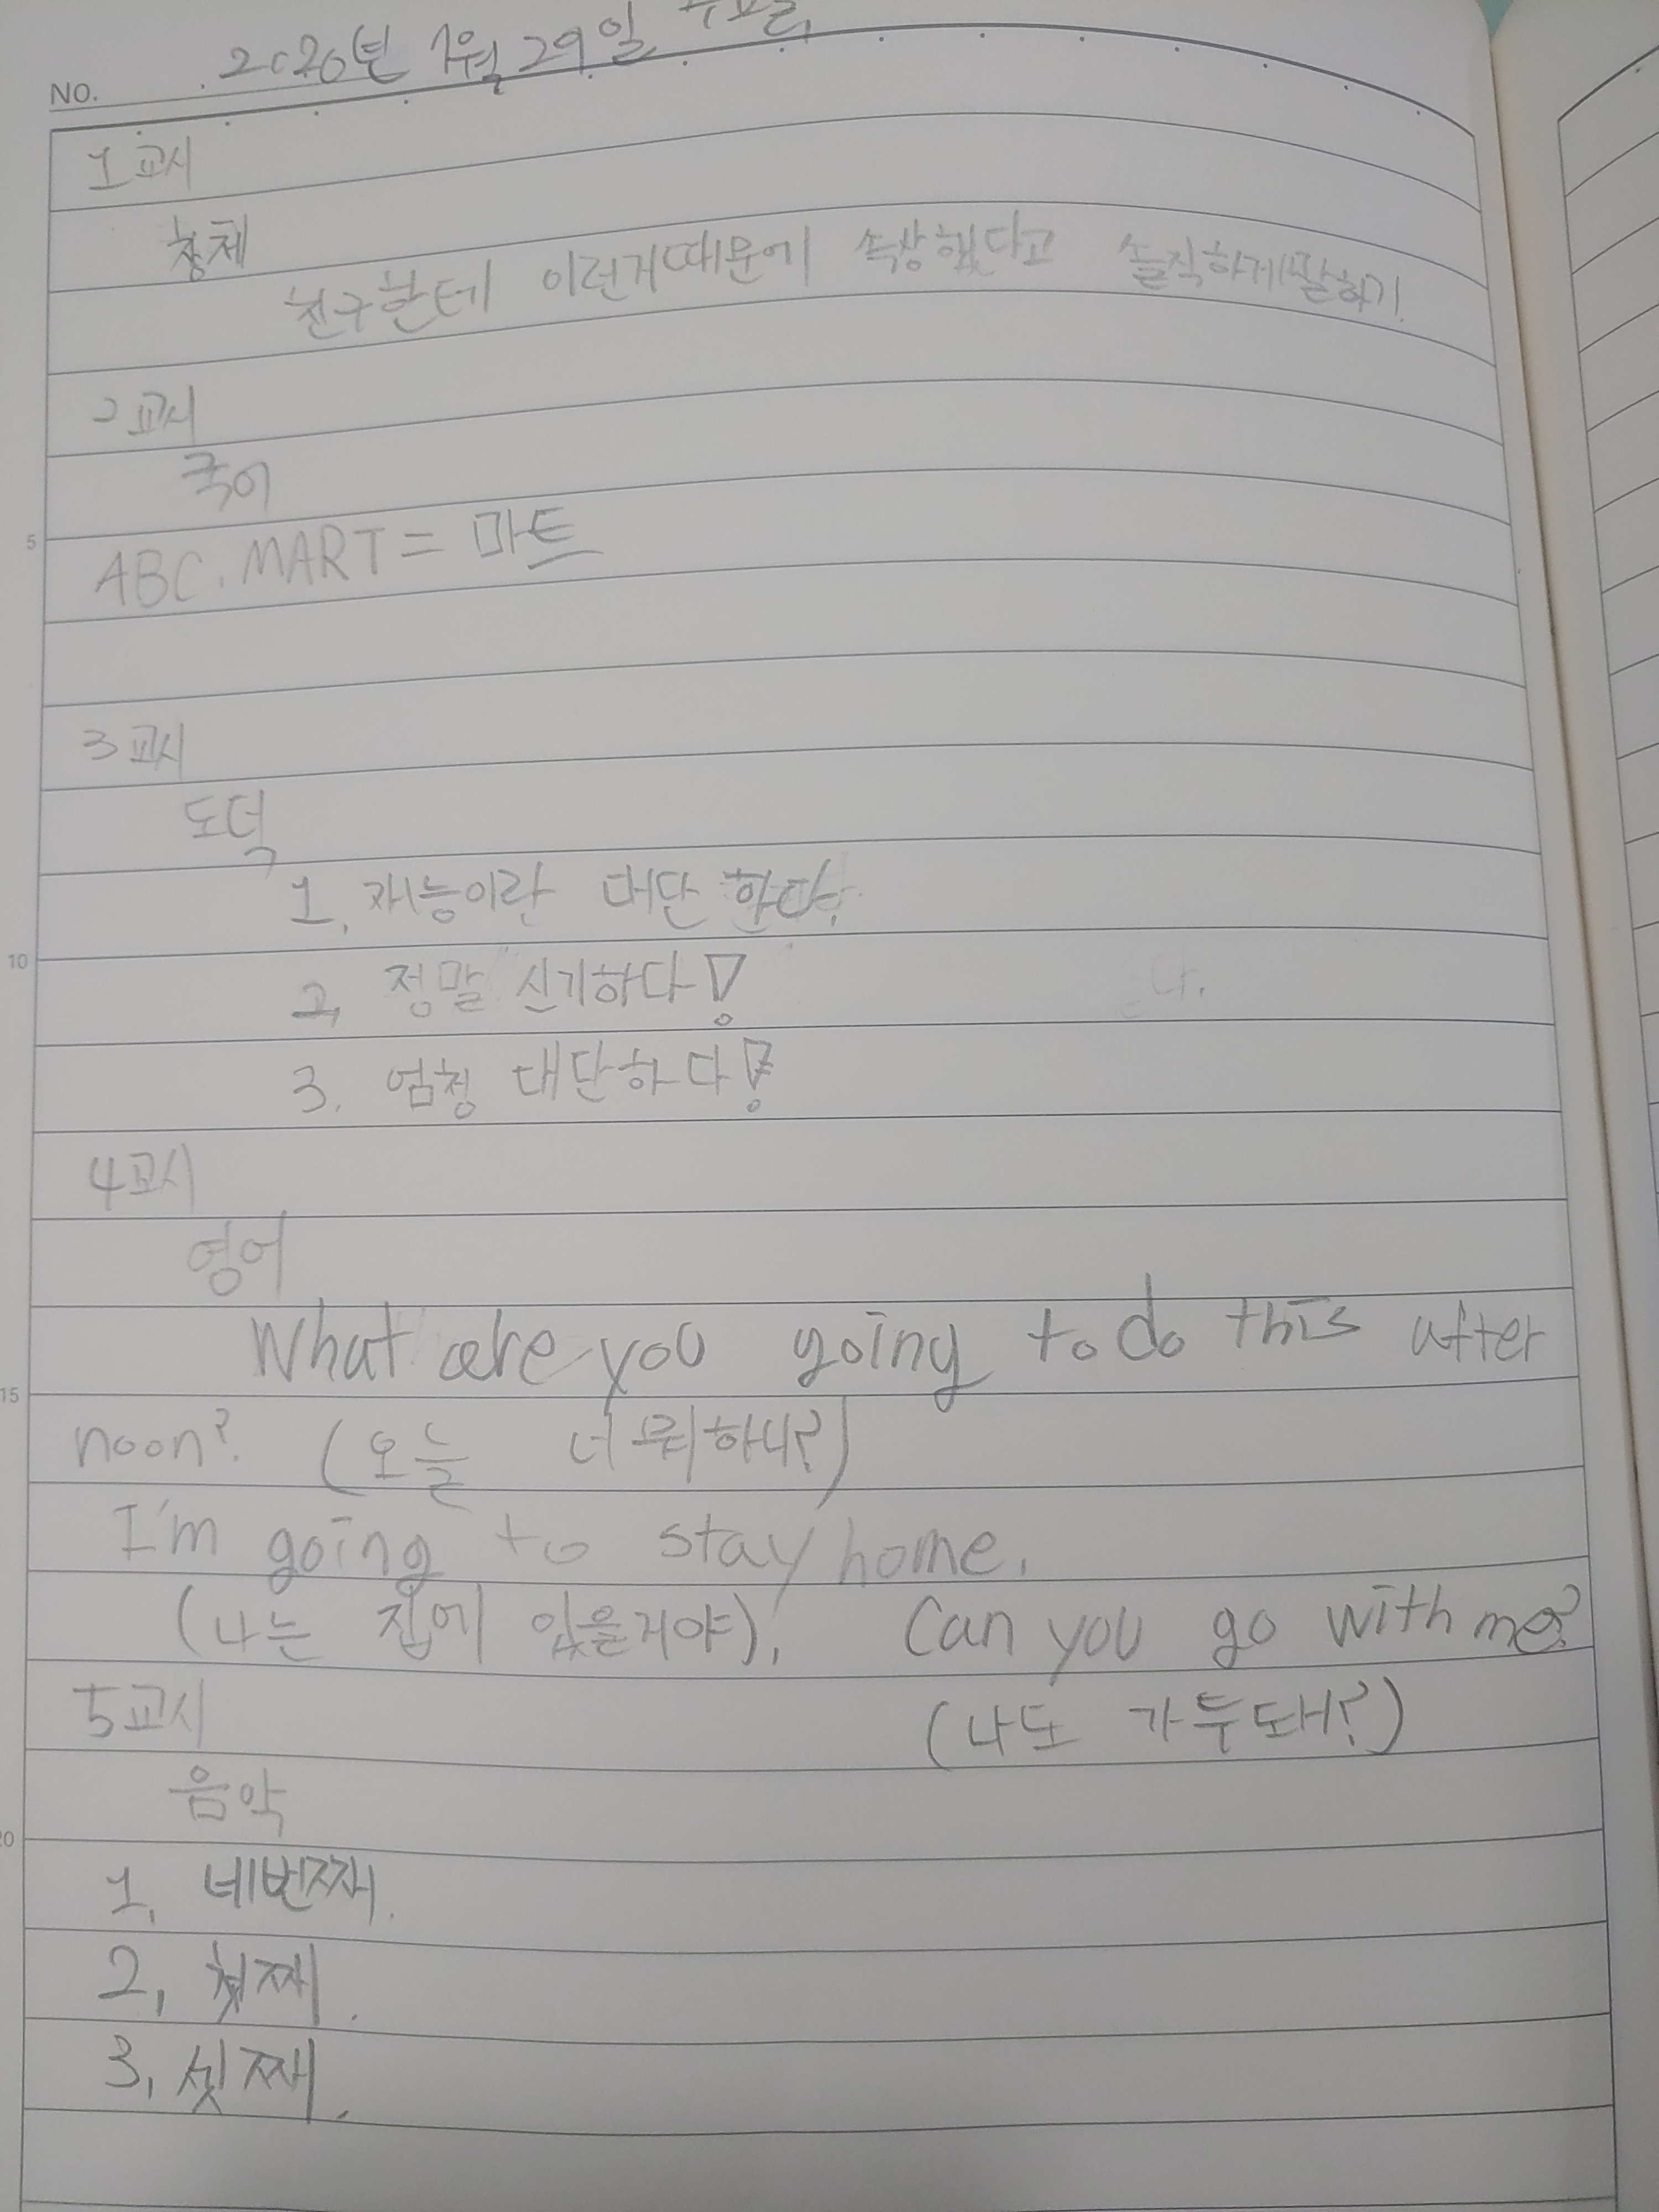 NO. 2020년 1월 29일 수요일
1교시
창체
친구한테 이런거때문에 속상했다고 솔직하게말하기.
2교시
국어
5
ABC.MART = 마트
3교시
도덕
1. 재능이란 대단 하다.
10
2. 정말 신기하다!
3. 엄청 대단하다!
4교시
영어
What are you going to do this after
15
noon? (오늘 너 뭐하니?)
I'm going to stay home.
(나는 집에 있을거야). Can you go with me?
5교시 (나도 가두돼?)
음악
20
1. 네번째.
2. 첫째.
3. 셋째.